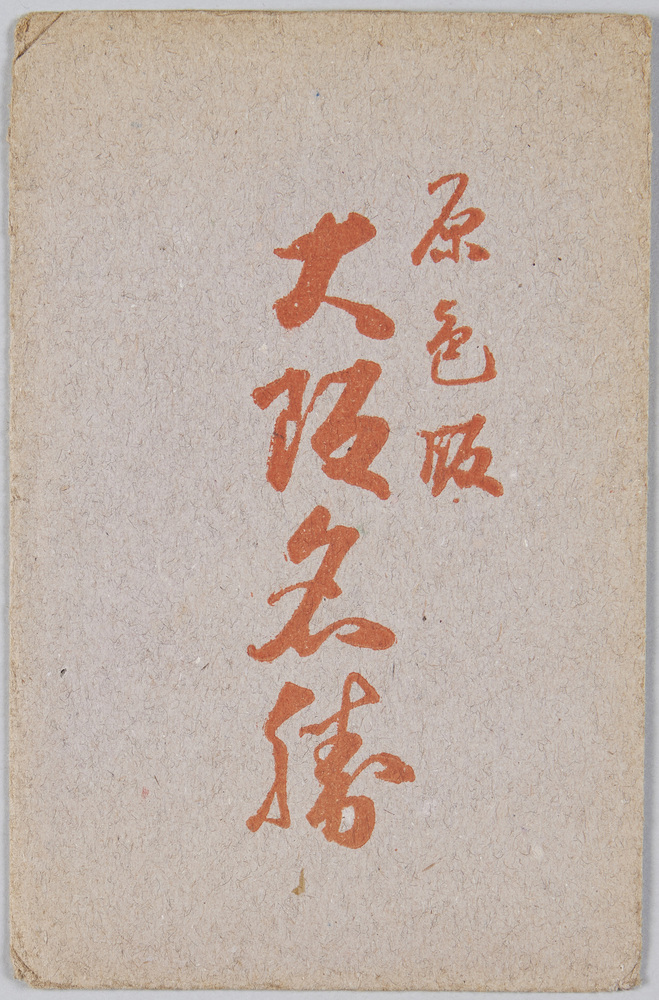 原色版
大阪名勝